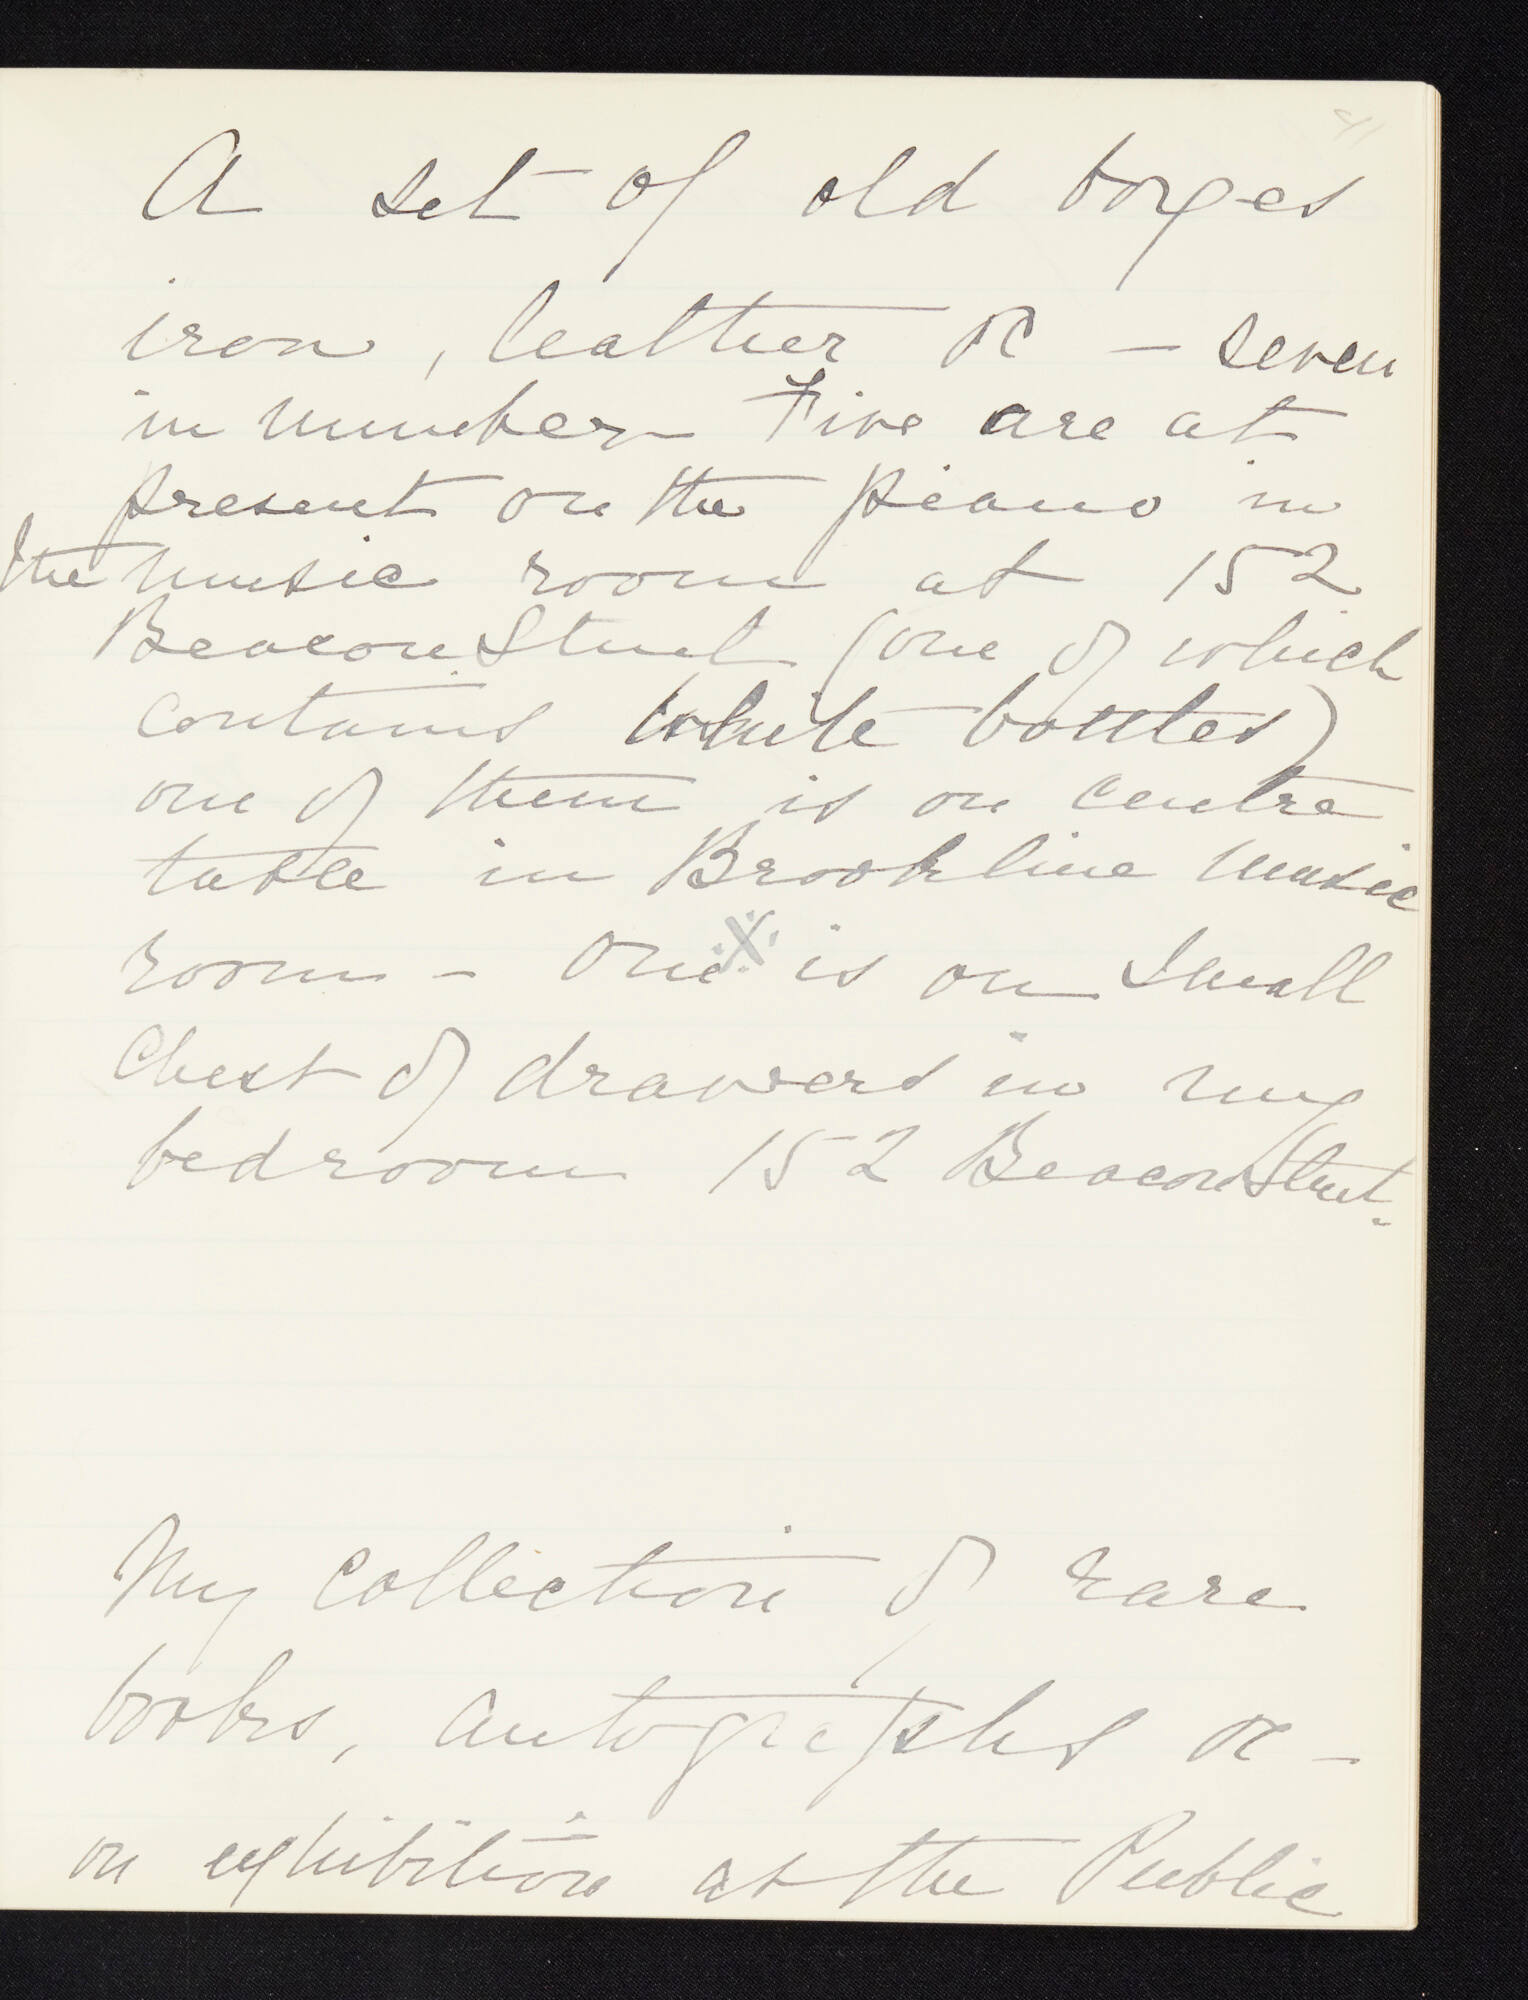 41
A set of old boxes
iron, leather &c — seven
in number Five are at
present on the piano in
the music room at 152
Beacon Street (one of which
contains white bottles)
one of them is on centre
table in Brookline music
room — One X is on small
chest of drawers in my
bedroom 152 Beacon Street.
My collection of rare
books, autographs &c —
on exhibition at the Public